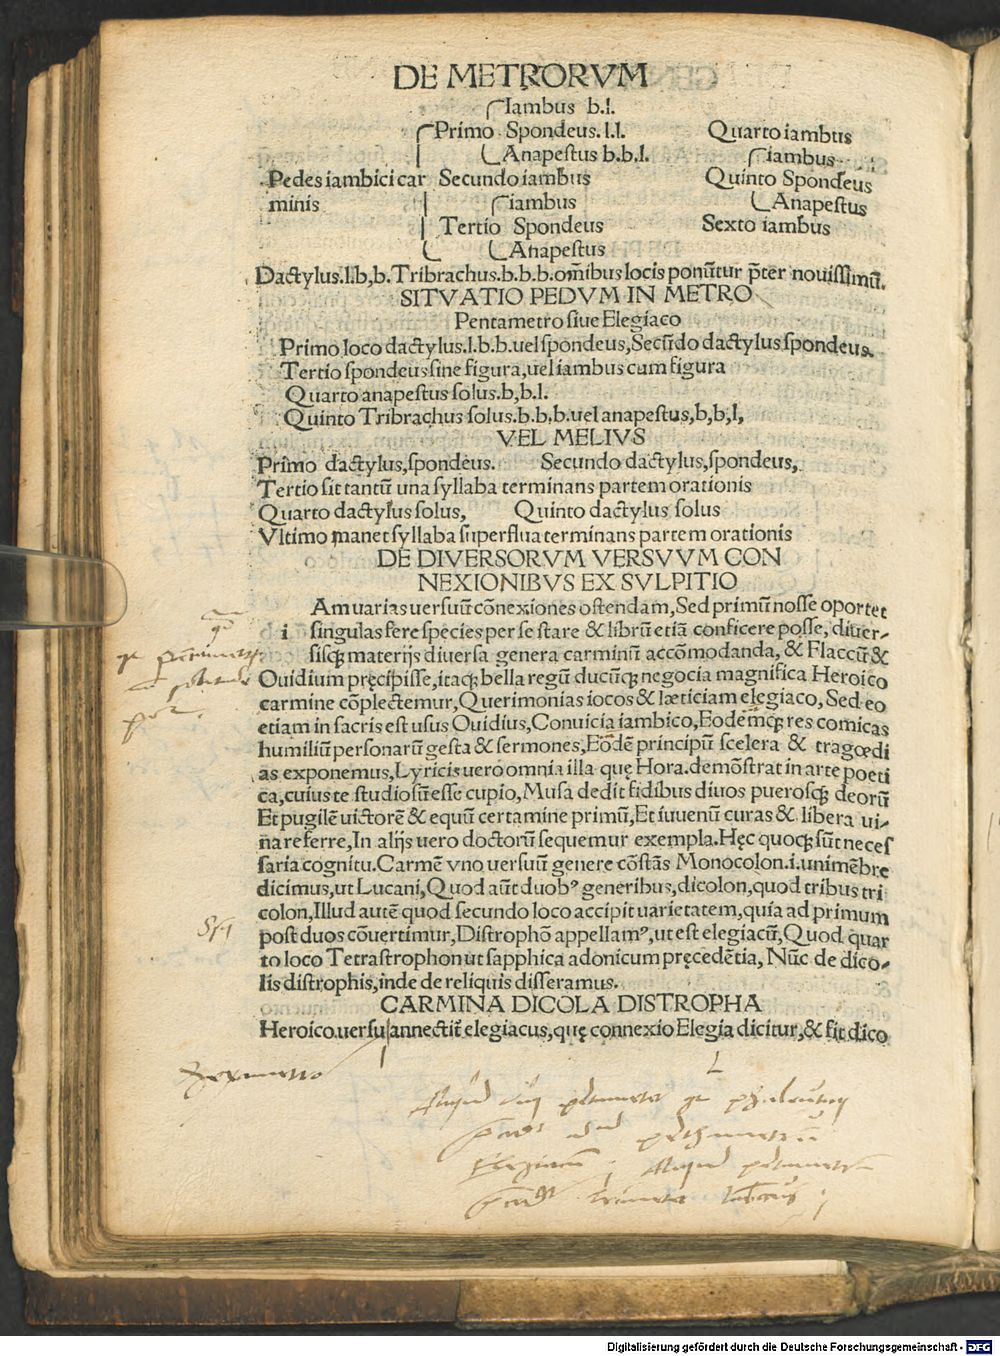 DE METRORVM
Iambus b.l.
Primo Spondeus.l.l. Quarto iambus
Anapestus b.b.l. iambus
Pedes iambici car Secundo iambus Quinto Spondeus
minis iambus Anapestus
Tertio Spondeus Sexto iambus
Anapestus
Dactylus.l.b,b.Tribrachus.b.b.b.om̃ibus locis ponũtur p̃ter nouissimũ.
SITVATIO PEDVM IN METRO
Pentametro siue Elegiaco
Primo loco dactylus.l.b.b.uel spondeus,Secũdo dactylus spondeus.
Tertio spondeus sine figura,uel iambus cum figura
Quarto anapestus solus.b,b.l.
Quinto Tribrachus solus.b.b.b.uel anapestus,b,b,l,
VEL MELIVS
Primo dactylus,spondeus. Secundo dactylus,spondeus,
Tertio sit tantũ una syllaba terminans partem orationis
Quarto dactylus solus, Quinto dactylus solus
Vltimo manet syllaba superflua terminans partem orationis
DE DIVERSORVM VERSVVM CON
NEXIONIBVS EX SVLPITIO
Am uarias uersuũ cõnexiones ostendam,Sed primũ nosse oportet
i singulas fere species per se stare & librũ etiã conficere posse, diuer-
sisq; materijs diuersa genera carminũ accõmodanda, & Flaccũ &
Ouidium pręcipisse,itaq; bella regũ ducũq; negocia magnifica Heroico
carmine cõplectemur,Querimonias iocos & læticiam elegiaco, Sed eo
etiam in sacris est usus Ouidius,Conuicia iambico,Eodemq; res comicas
humiliũ personarũ gesta & sermones,Eodẽ principũ scelera & tragœdi
as exponemus,Lyricis uero omnia illa quę Hora.demõstrat in arte poeti
ca,cuius te studiosũ esse cupio,Musa dedit fidibus diuos puerosq; deorũ
Et pugilẽ uictorẽ & equũ certamine primũ,Et iuuenũ curas & libera ui-
na referre,In alijs uero doctorũ sequemur exempla.Hęc quoq; sũt neces
saria cognitu.Carmẽ vno uersuũ genere cõstãs Monocolon.i.unimẽbre
dicimus,ut Lucani,Quod aũt duobꝰ generibus,dicolon,quod tribus tri
colon,Illud autẽ quod secundo loco accipit uarietatem,quia ad primum
post duos cõuertimur,Distrophõ appellamꝰ,ut est elegiacũ,Quod quar
to loco Tetrastrophon ut sapphica adonicum pręcedẽtia, Nũc de dico-
lis distrophis,inde de reliquis disseramus.
CARMINA DICOLA DISTROPHA
Heroico uersu annectit̃ elegiacus,quę connexio Elegia dicitur,& fit dico
Digitalisierung gefördert durch die Deutsche Forschungsgemeinschaft - DFG